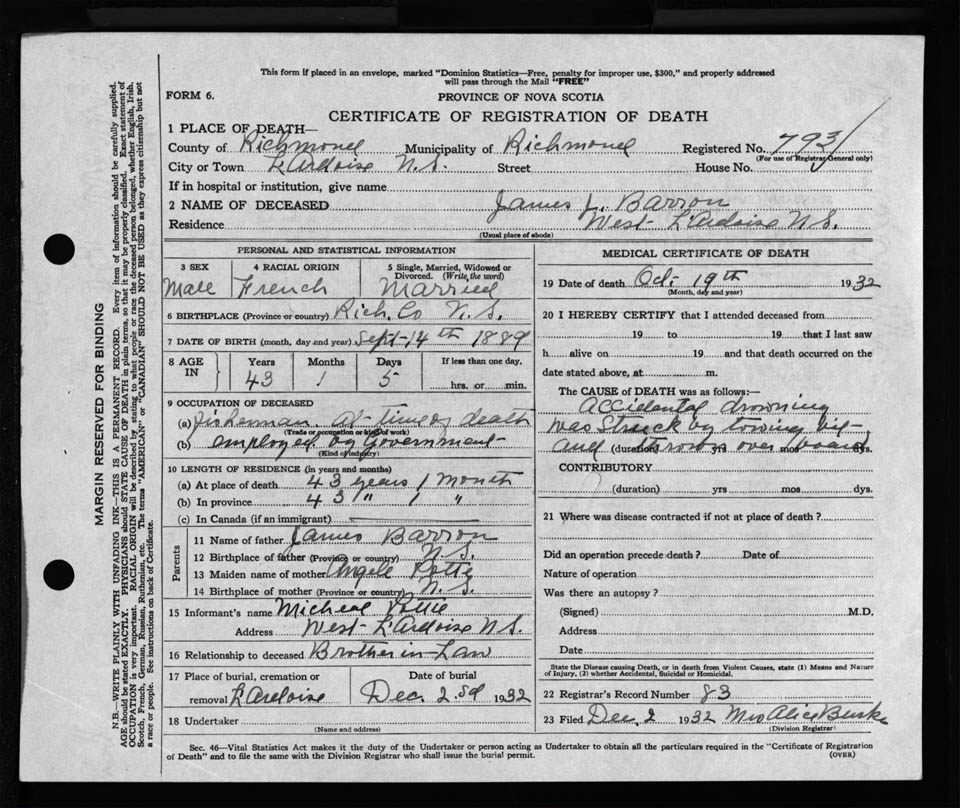 This form if placed in an envelope, marked "Dominion Statistics—Free, penalty for improper use, $300," and properly addressed
will pass through the Mail "FREE"
FORM 6.
PROVINCE OF NOVA SCOTIA
CERTIFICATE OF REGISTRATION OF DEATH
1 PLACE OF DEATH—
County of Richmond Municipality of Richmond Registered No. 793
(For use of Registrar General only)
City or Town L'Ardoise N.S. Street House No.
If in hospital or institution, give name
2 NAME OF DECEASED James J. Barron
Residence West L'Ardoise N.S.
(Usual place of abode)
PERSONAL AND STATISTICAL INFORMATION
3 SEX 4 RACIAL ORIGIN 5 Single, Married, Widowed or
Divorced. (Write the word)
Male French Married
6 BIRTHPLACE (Province or country) Rich. Co N.S.
7 DATE OF BIRTH (month, day and year) Sept-14th 1889
8 AGE IN Years Months Days If less than one day,
43 1 5 hrs. or min.
9 OCCUPATION OF DECEASED
(a) Fisherman at time of death
(Trade or occupation or kind of work)
(b) employed by Government
(Kind of industry)
10 LENGTH OF RESIDENCE (in years and months)
(a) At place of death 43 years 1 month
(b) In province 43 " 1 "
(c) In Canada (if an immigrant)
Parents
11 Name of father James Barron
12 Birthplace of father (Province or country) N.S.
13 Maiden name of mother Angele
14 Birthplace of mother (Province or country) N.S.
15 Informant's name Micheal
Address West L'Ardoise N.S.
16 Relationship to deceased Brother in Law
17 Place of burial, cremation or Date of burial
removal L'Ardoise Dec. 2 1932
18 Undertaker
(Name and address)
MEDICAL CERTIFICATE OF DEATH
19 Date of death Oct. 19th 1932
(Month, day and year)
20 I HEREBY CERTIFY that I attended deceased from
19 to 19 that I last saw
h alive on 19 and that death occurred on the
date stated above, at m.
The CAUSE of DEATH was as follows:
accidental drowning
was struck by towing bit
and thrown over board
(duration) yrs mos dys.
CONTRIBUTORY
(duration) yrs mos dys.
21 Where was disease contracted if not at place of death?
Did an operation precede death? Date of
Nature of operation
Was there an autopsy?
(Signed) M.D.
Address
Date
State the Disease causing Death, or in death from Violent Causes, state (1) Means and Nature
of Injury, (2) whether Accidental, Suicidal or Homicidal.
22 Registrar's Record Number 83
23 Filed Dec 2 1932 Mrs Alice Burke
(Division Registrar)
Sec. 46—Vital Statistics Act makes it the duty of the Undertaker or person acting as Undertaker to obtain all the particulars required in the "Certificate of Registration
of Death" and to file the same with the Division Registrar who shall issue the burial permit.
(OVER)
MARGIN RESERVED FOR BINDING
N.B.—WRITE PLAINLY WITH UNFADING INK—THIS IS A PERMANENT RECORD. Every item of information should be carefully supplied.
AGE should be stated EXACTLY. PHYSICIANS should STATE CAUSE OF DEATH in plain terms, so that it may be properly classified. Exact statement of
OCCUPATION is very important. RACIAL ORIGIN will be described by stating to what people or race the deceased person belonged, whether English, Irish,
Scotch, French, German, Russian, Ruthenian, etc. The terms "AMERICAN" or "CANADIAN" SHOULD NOT BE USED as they express citizenship but not
a race or people. See instructions on back of Certificate.